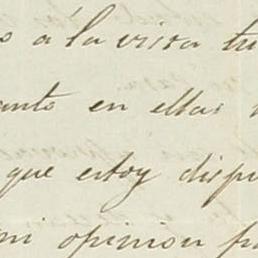 s á la vista tu
anto en ellas
que estoy dispu
mi opinion pa